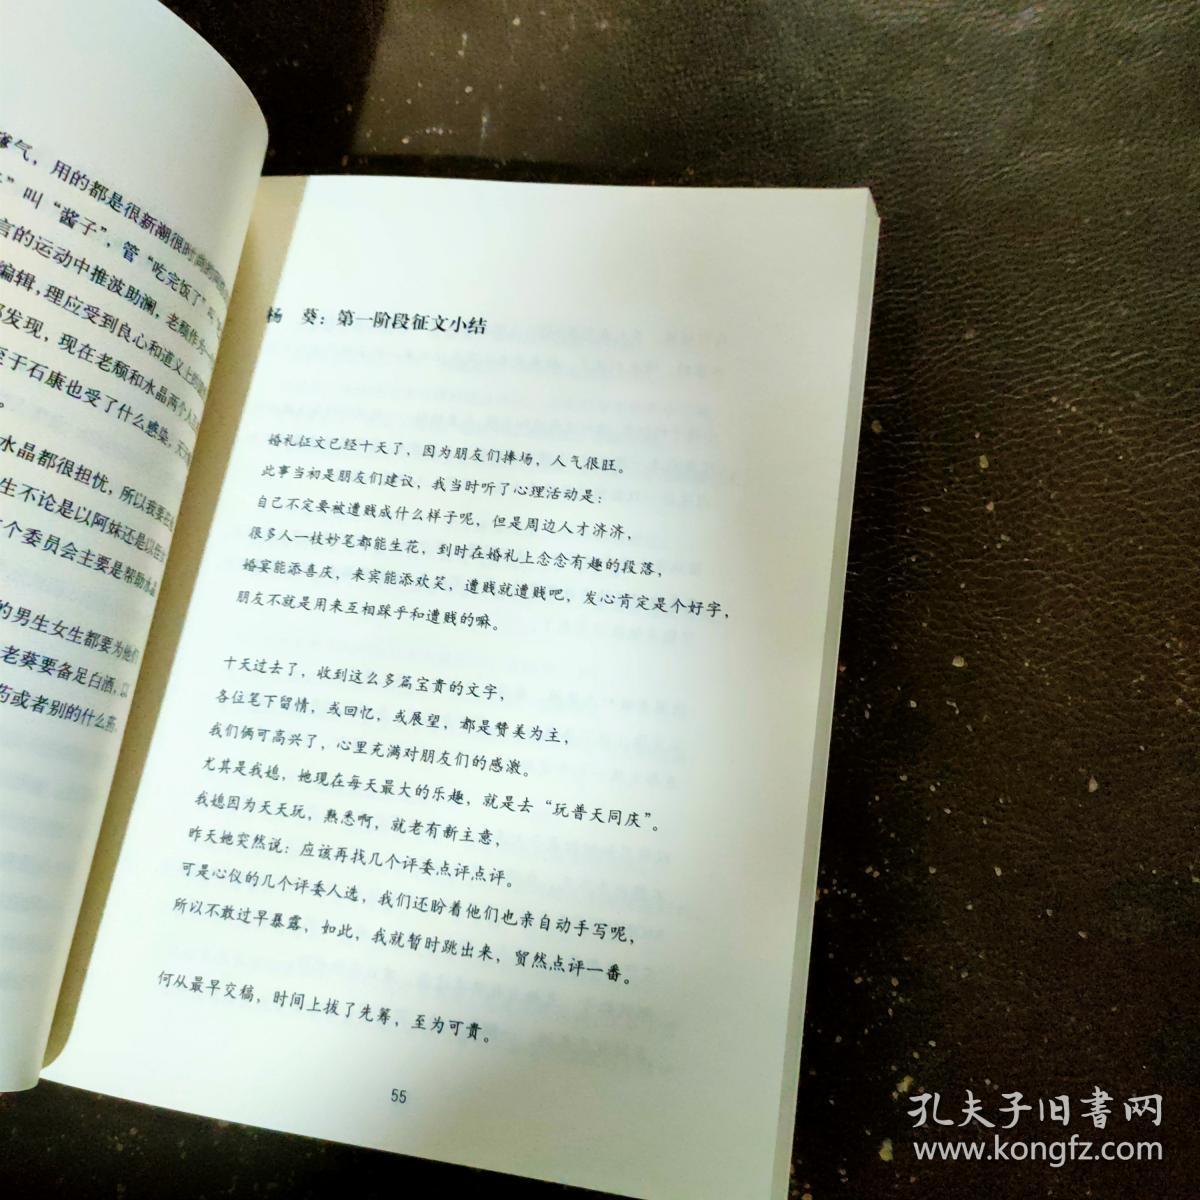 气，用的都是很新潮很时
”叫“酱子”，管“吃完饭了”
言的运动中推波助澜，老颓作为一
编辑，理应受到良心和道义上的
发现，现在老颓和水晶两个人
至于石康也受了什么感染，天
。
水晶都很担忧，所以我要在
生不论是以阿妹还是以
个委员会主要是帮助水晶
的男生女生都要为他们
老葵要备足白酒，以
药或者别的什么
杨　葵：第一阶段征文小结
婚礼征文已经十天了，因为朋友们捧场，人气很旺。
此事当初是朋友们建议，我当时听了心理活动是：
自己不定要被遭贱成什么样子呢，但是周边人才济济，
很多人一枝妙笔都能生花，到时在婚礼上念念有趣的段落，
婚宴能添喜庆，来宾能添欢笑，遭贱就遭贱吧，发心肯定是个好字，
朋友不就是用来互相踩乎和遭贱的嘛。
十天过去了，收到这么多篇宝贵的文字，
各位笔下留情，或回忆，或展望，都是赞美为主，
我们俩可高兴了，心里充满对朋友们的感激。
尤其是我媳，她现在每天最大的乐趣，就是去“玩普天同庆”。
我媳因为天天玩，熟悉啊，就老有新主意，
昨天她突然说：应该再找几个评委点评点评。
可是心仪的几个评委人选，我们还盼着他们也亲自动手写呢，
所以不敢过早暴露，如此，我就暂时跳出来，贸然点评一番。
何从最早交稿，时间上拔了先筹，至为可贵。
55
孔夫子旧書网
www.kongfz.com